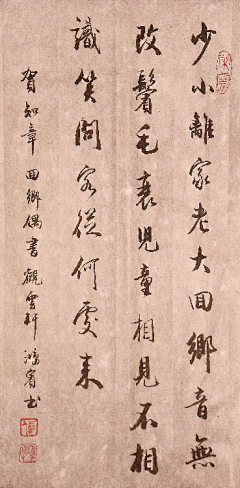 少小離家老大回鄉音無
改鬢毛衰兒童相見不相
識笑問客從何處來
賀知章回鄉偶書觀雲軒鴻賓書